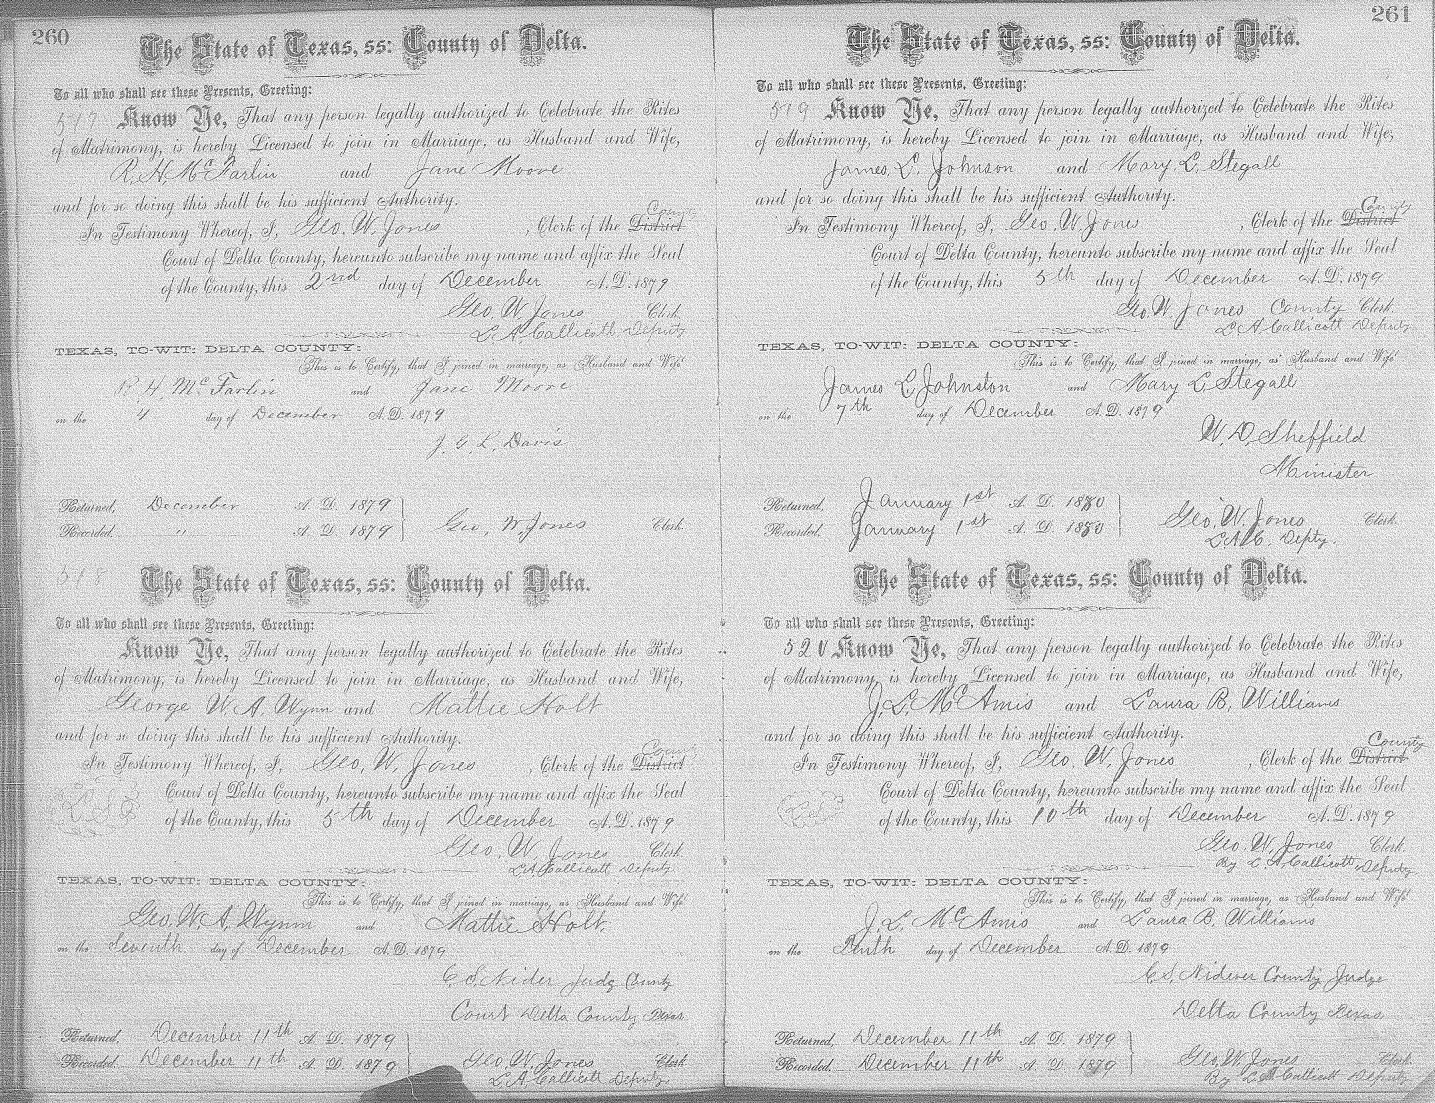 260
The State of Texas, ss: County of Delta.
To all who shall see these Presents, Greeting:
517 Know Ye, That any person legally authorized to Celebrate the Rites
of Matrimony, is hereby Licensed to join in Marriage, as Husband and Wife,
R. H. McFarlin and Jane Moore
and for so doing this shall be his sufficient Authority.
County
In Testimony Whereof, I, Geo. W. Jones, Clerk of the District
Court of Delta County, hereunto subscribe my name and affix the Seal
of the County, this 2nd day of December A.D. 1879
Geo W Jones Clerk.
L A Callicott Deputy
TEXAS, TO-WIT: DELTA COUNTY:
This is to Certify, that I joined in marriage, as Husband and Wife
R H McFarlin and Jane Moore
on the 4 day of December A.D. 1879
J. G. L. Davis
Returned, December A. D. 1879
Recorded. " A. D. 1879 Geo, W Jones Clerk.
518 The State of Texas, ss: County of Delta.
To all who shall see these Presents, Greeting:
Know Ye, That any person legally authorized to Celebrate the Rites
of Matrimony, is hereby Licensed to join in Marriage, as Husband and Wife,
George W A Wynn and Mattie Holt
and for so doing this shall be his sufficient Authority.
County
In Testimony Whereof, I, Geo, W. Jones, Clerk of the District
Court of Delta County, hereunto subscribe my name and affix the Seal
of the County, this 5th day of December A.D. 1879
Geo. W. Jones Clerk.
L A Callicott Deputy
TEXAS, TO-WIT: DELTA COUNTY:
This is to Certify, that I joined in marriage, as Husband and Wife
Geo. W. A. Wynn and Mattie Holt.
on the Seventh day of December A.D. 1879
C. S. Nider Judg County
Court Delta County Texas
Returned, December 11th A. D. 1879
Recorded. December 11th A. D. 1879 Geo W. Jones Clerk
L. A. Callicott Deputy
261
The State of Texas, ss: County of Delta.
To all who shall see these Presents, Greeting:
519 Know Ye, That any person legally authorized to Celebrate the Rites
of Matrimony, is hereby Licensed to join in Marriage, as Husband and Wife,
James, L. Johnson and Mary L. Stegall
and for so doing this shall be his sufficient Authority.
County
In Testimony Whereof, I, Geo. W. Jones, Clerk of the District
Court of Delta County, hereunto subscribe my name and affix the Seal
of the County, this 5th day of December A.D. 1879
Geo W Jones County Clerk.
L A Callicott Deputy
TEXAS, TO-WIT: DELTA COUNTY:
This is to Certify, that I joined in marriage, as Husband and Wife
James L Johnston and Mary L Stegall
on the 7th day of December A.D. 1879
W. D. Sheffield
Minister
Returned, January 1st A. D. 1880
Recorded. January 1st A. D. 1880 Geo. W. Jones Clerk.
L A C. Depty.
The State of Texas, ss: County of Delta.
To all who shall see these Presents, Greeting:
520 Know Ye, That any person legally authorized to Celebrate the Rites
of Matrimony, is hereby Licensed to join in Marriage, as Husband and Wife,
J. L. McAmis and Laura B. Williams
and for so doing this shall be his sufficient Authority.
County
In Testimony Whereof, I, Geo. W. Jones, Clerk of the District
Court of Delta County, hereunto subscribe my name and affix the Seal
of the County, this 10th day of December A.D. 1879
Geo W. Jones Clerk.
By L A Callicott Deputy
TEXAS, TO-WIT: DELTA COUNTY:
This is to Certify, that I joined in marriage, as Husband and Wife
J. L. McAmis and Laura B. Williams
on the Tenth day of December A.D. 1879
C. S. Nidever County Judge
Delta County Texas
Returned, December 11th A. D. 1879
Recorded. December 11th A. D. 1879 Geo W. Jones Clerk.
By L A Callicott Deputy